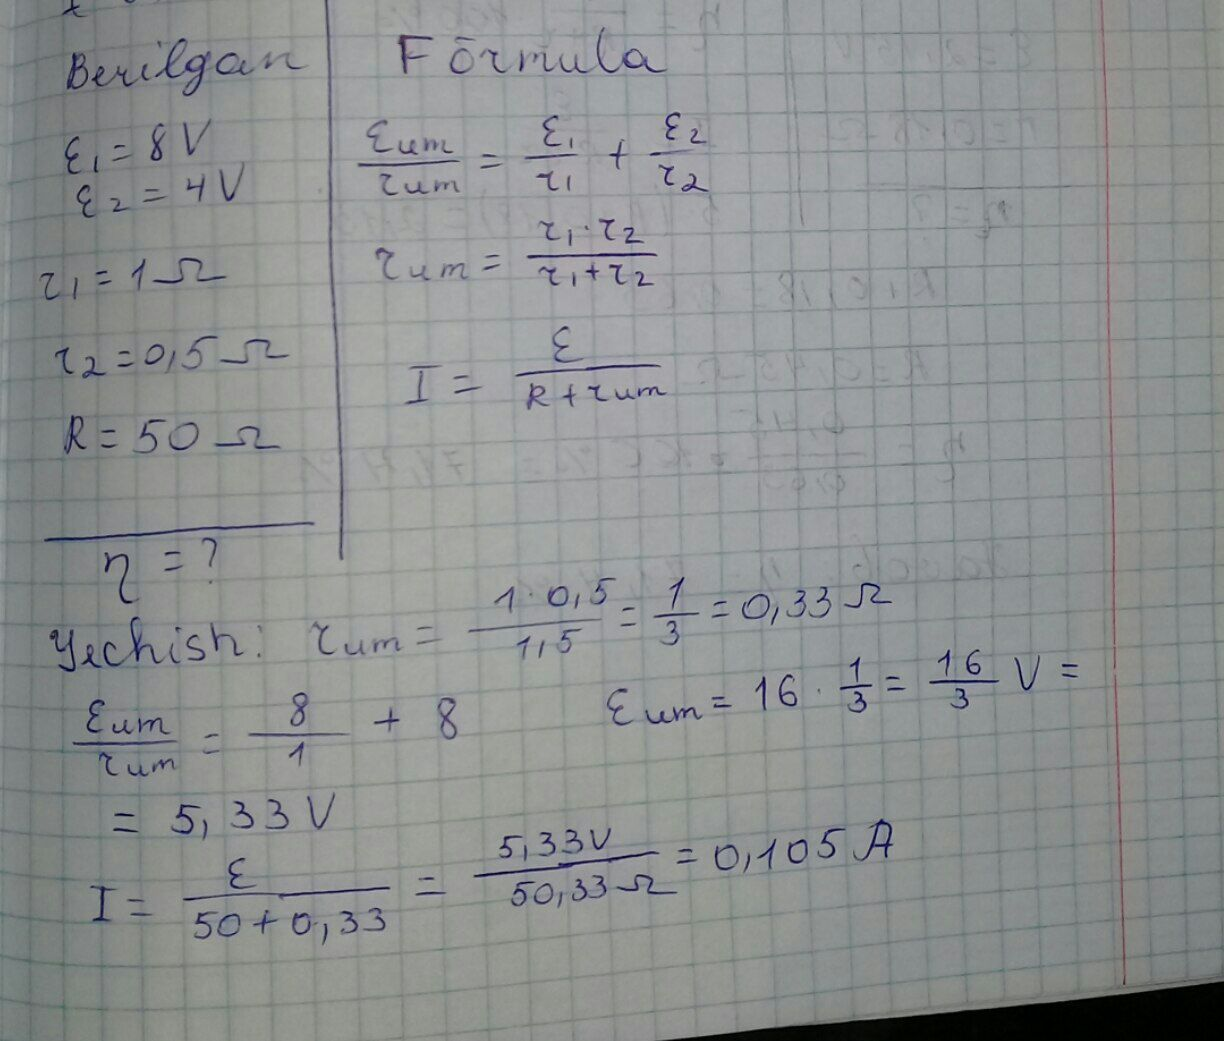 Berilgan
ε1 = 8 V
ε2 = 4 V
r1 = 1 Ω
r2 = 0,5 Ω
R = 50 Ω
η = ?
Formula
εum/rum = ε1/r1 + ε2/r2
rum = r1·r2/r1+r2
I = ε/R+rum
Yechish: rum = 1·0,5/1,5 = 1/3 = 0,33 Ω
εum/rum = 8/1 + 8 εum = 16 · 1/3 = 16/3 V =
= 5,33 V
I = ε/50+0,33 = 5,33V/50,33 Ω = 0,105 A